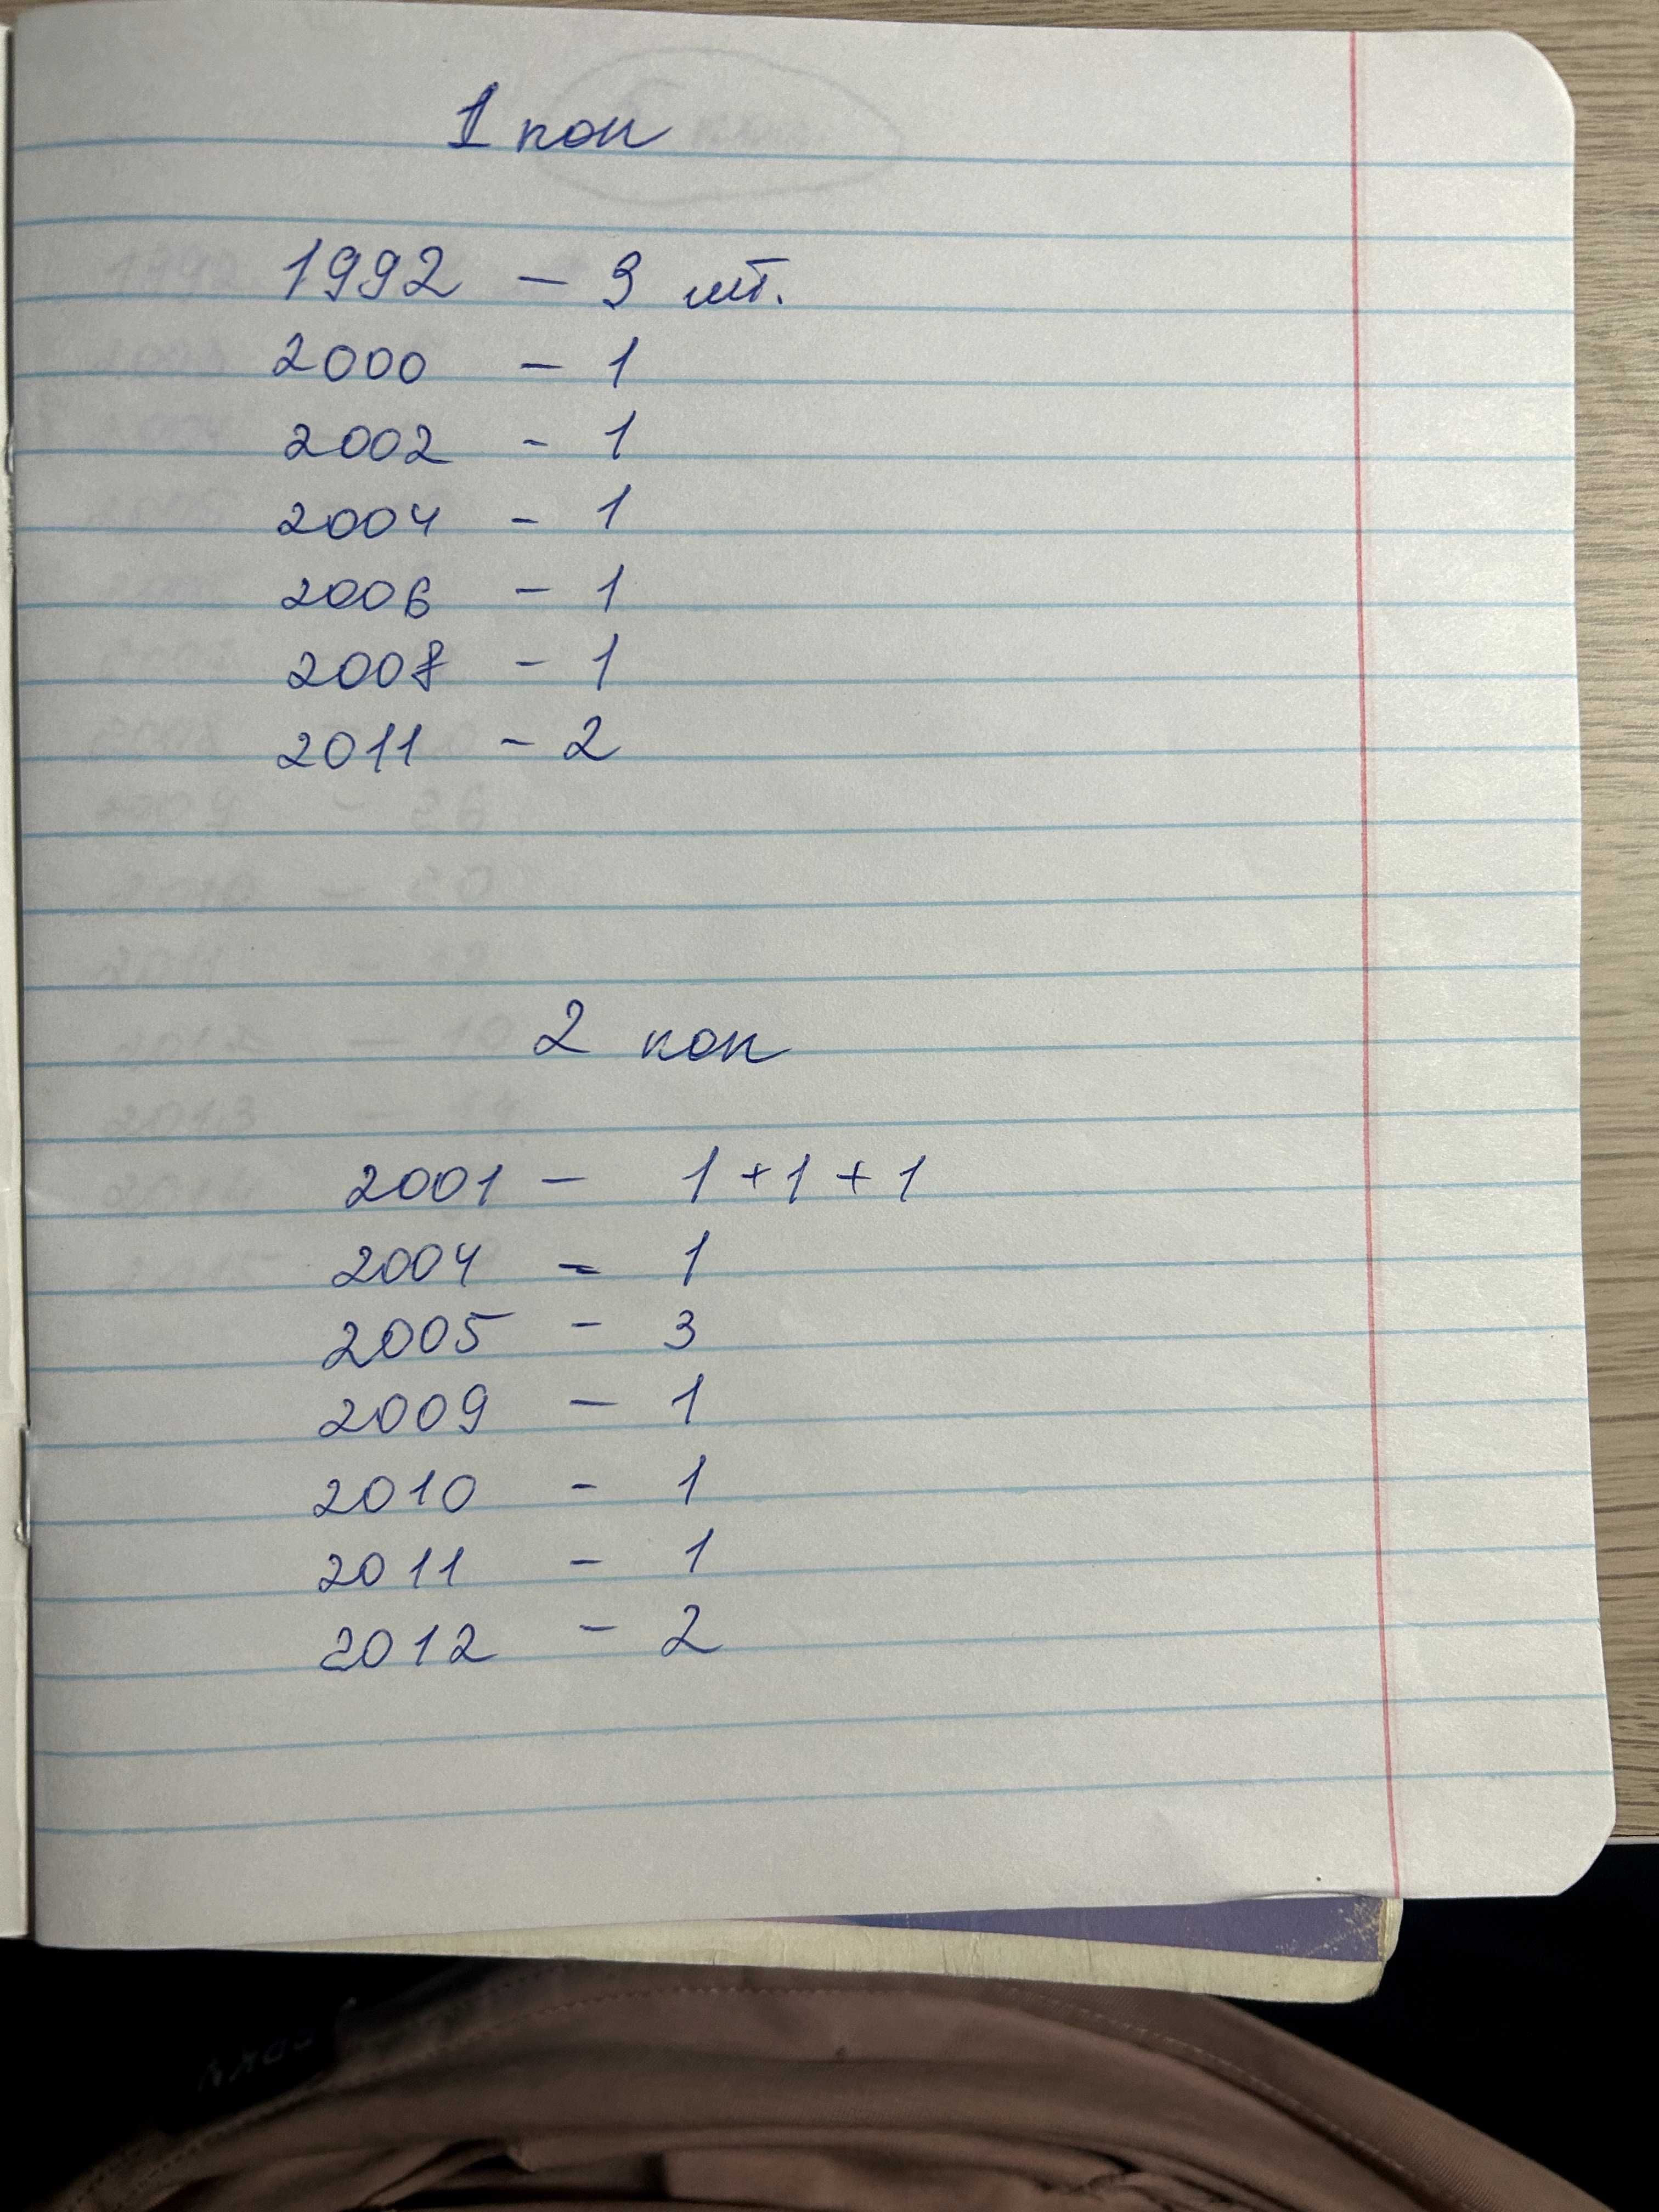 1 коп
1992 - 3 шт.
2000 - 1
2002 - 1
2004 - 1
2006 - 1
2008 - 1
2011 - 2
2 коп
2001 - 1+1+1
2004 - 1
2005 - 3
2009 - 1
2010 - 1
2011 - 1
2012 - 2